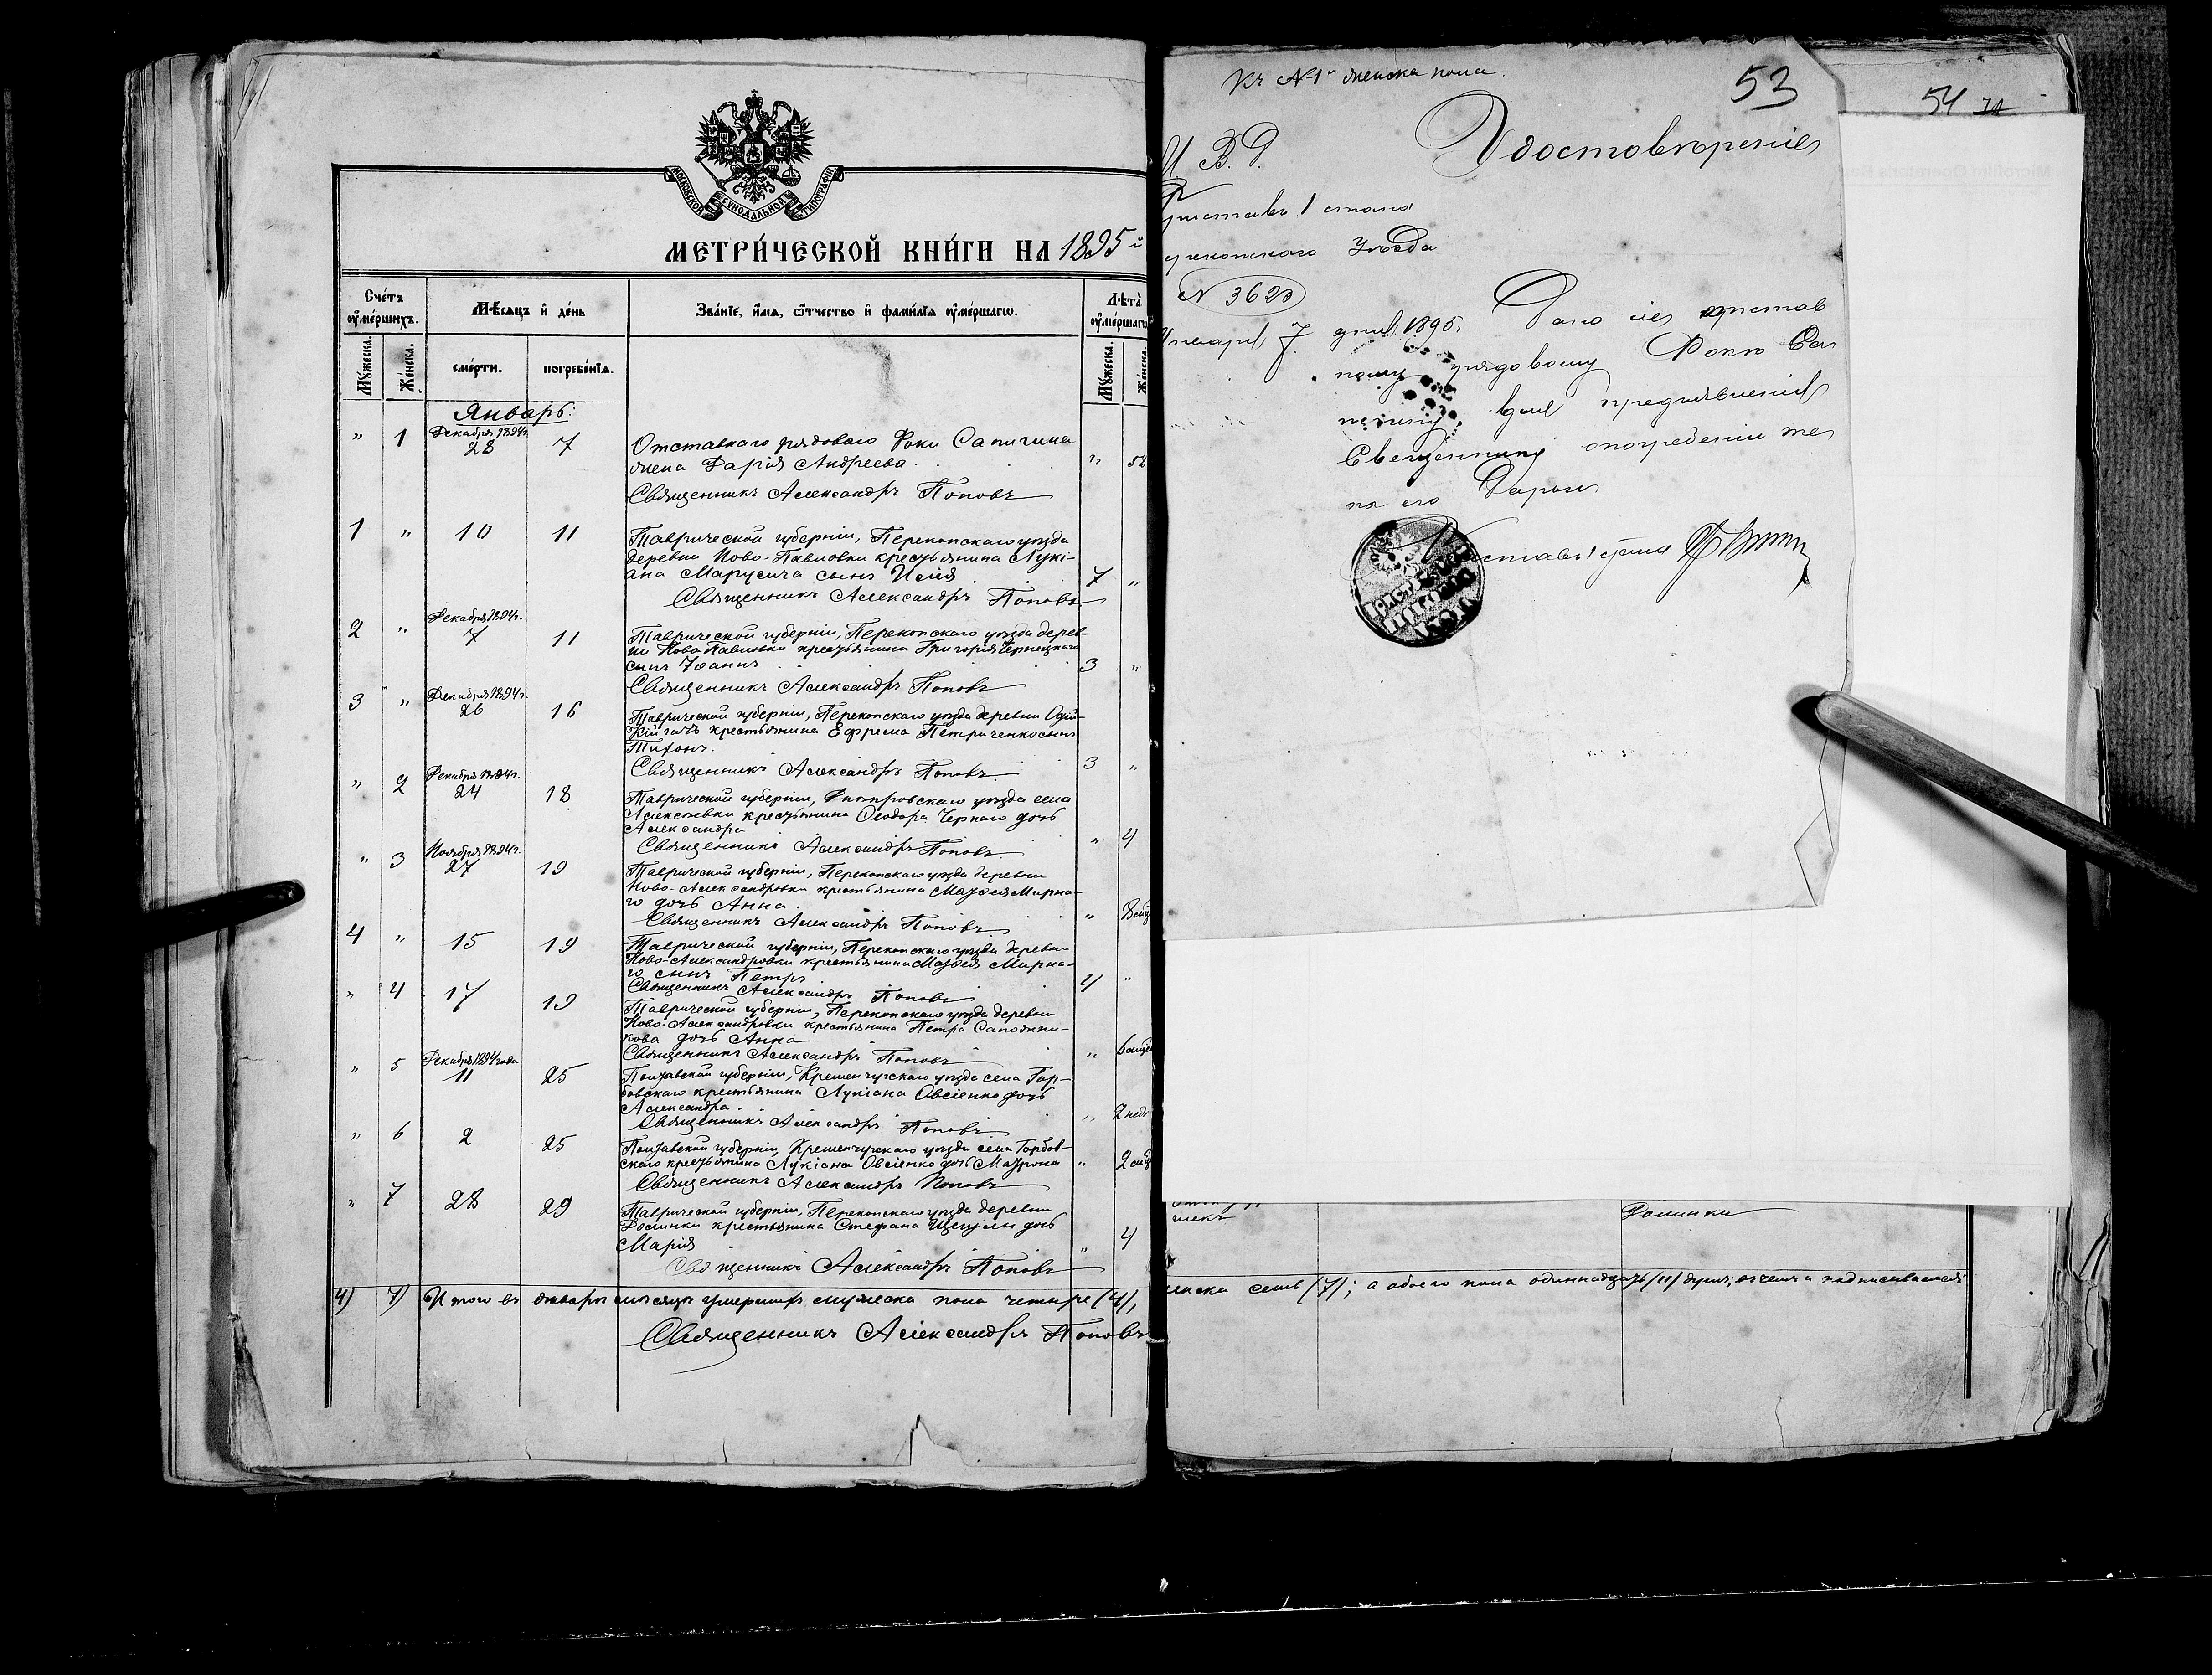 МОСКОВСКОЙ СѴНОДАЛЬНОЙ ТИПОГРАФІИ
МЕТРИ́ЧЕСКОЙ КНИ́ГИ НА 1895 й
Сче́тъ ᲂуме́ршихъ.
Мѣ́сяцъ и҆ де́нь
Зва́нїе, и҆́мѧ, ѻ҆́тчество и҆ фами́лїѧ ᲂу҆ме́ршагѡ.
Лѣ́та ᲂу҆ме́ршагѡ
Мꙋ́жеска.
Же́нска.
сме́рти.
погребе́нїѧ.
Мꙋ́жеска.
Же́нска.
Январь:
" 1 Декабря 1894 г. 28 7 Отставнаго рядоваго Фоки Сапигина
жена Дарія Андреева. " 58
Священникъ Александръ Поповъ
1 " 10 11 Таврической губерніи, Перекопскаго уѣзда
деревни Ново-Павловки крестьянина Лукі-
ана Марусича сынъ Илія 7 "
Священникъ Александръ Поповъ
2 " Декабря 1894 г. 7 11 Таврической губерніи, Перекопскаго уѣзда дерев-
ни Ново Павловки крестьянина Григорія Чернецкаго
сынъ Іоаннъ 3 "
Священникъ Александръ Поповъ
3 " Декабря 1894 г. 26 16 Таврической губерніи, Перекопскаго уѣзда деревни
крестьянина Ефрема Петриченко сынъ
Тихонъ.
Священникъ Александръ Поповъ. 3 "
" 2 Декабря 1894 г. 24 18 Таврической губерніи, Днѣпровскаго уѣзда села
Алексѣевки крестьянина Ѳеодора Чернаго дочь
Александра
Священникъ Александръ Поповъ. " 4
" 3 Ноября 1894 г. 27 19 Таврической губерніи, Перекопскаго уѣзда деревни
Ново-Александровки крестьянина Матѳея Мирна-
го дочь Анна.
Священникъ Александръ Поповъ " 8
4 " 15 19 Таврической губерніи, Перекопскаго уѣзда деревни
Ново-Александровки крестьянина Матѳея Мирна-
го сынъ Петръ
Священникъ Александръ Поповъ 4 "
" 4 17 19 Таврической губерніи, Перекопскаго уѣзда деревни
Ново-Александровки крестьянина Петра Сапожни-
кова дочь Анна
Священникъ Александръ Поповъ " 6
" 5 Декабря 1894 года 11 25 Полтавской губерніи, Кременчугскаго уѣзда села Гор-
бовскаго крестьянина Лукіана Овсіенко дочь
Александра. " 2 нед
Священникъ Александръ Поповъ
" 6 2 25 Полтавской губерніи, Кременчугскаго уѣзда села Горбов-
скаго крестьянина Лукіана Овсіенко дочь Матрона " 2
Священникъ Александръ Поповъ
" 7 28 29 Таврической губерніи, Перекопскаго уѣзда деревни
крестьянина Стефана дочь
Марія " 4
Священникъ Александръ Поповъ
4) 7) Итого въ январѣ мѣсяцѣ умершихъ мужеска пола четыре (4),
Священникъ Александръ Поповъ
Къ №1й женска пола.
53
54
М. В. Д.
Удостовѣреніе
Приставъ 1 стана
рекопскаго Уѣзда
N 3623
Января 7 дня 1895. Дано сіе отстав
ному рядовому Фокѣ Са
для предъявленія
Священнику о погребеніи же
на его Дарьи
Приставъ 1 стана
женска семь (7); а обоего пола одиннадцать (11) душъ; въ чемъ и подписываемся: